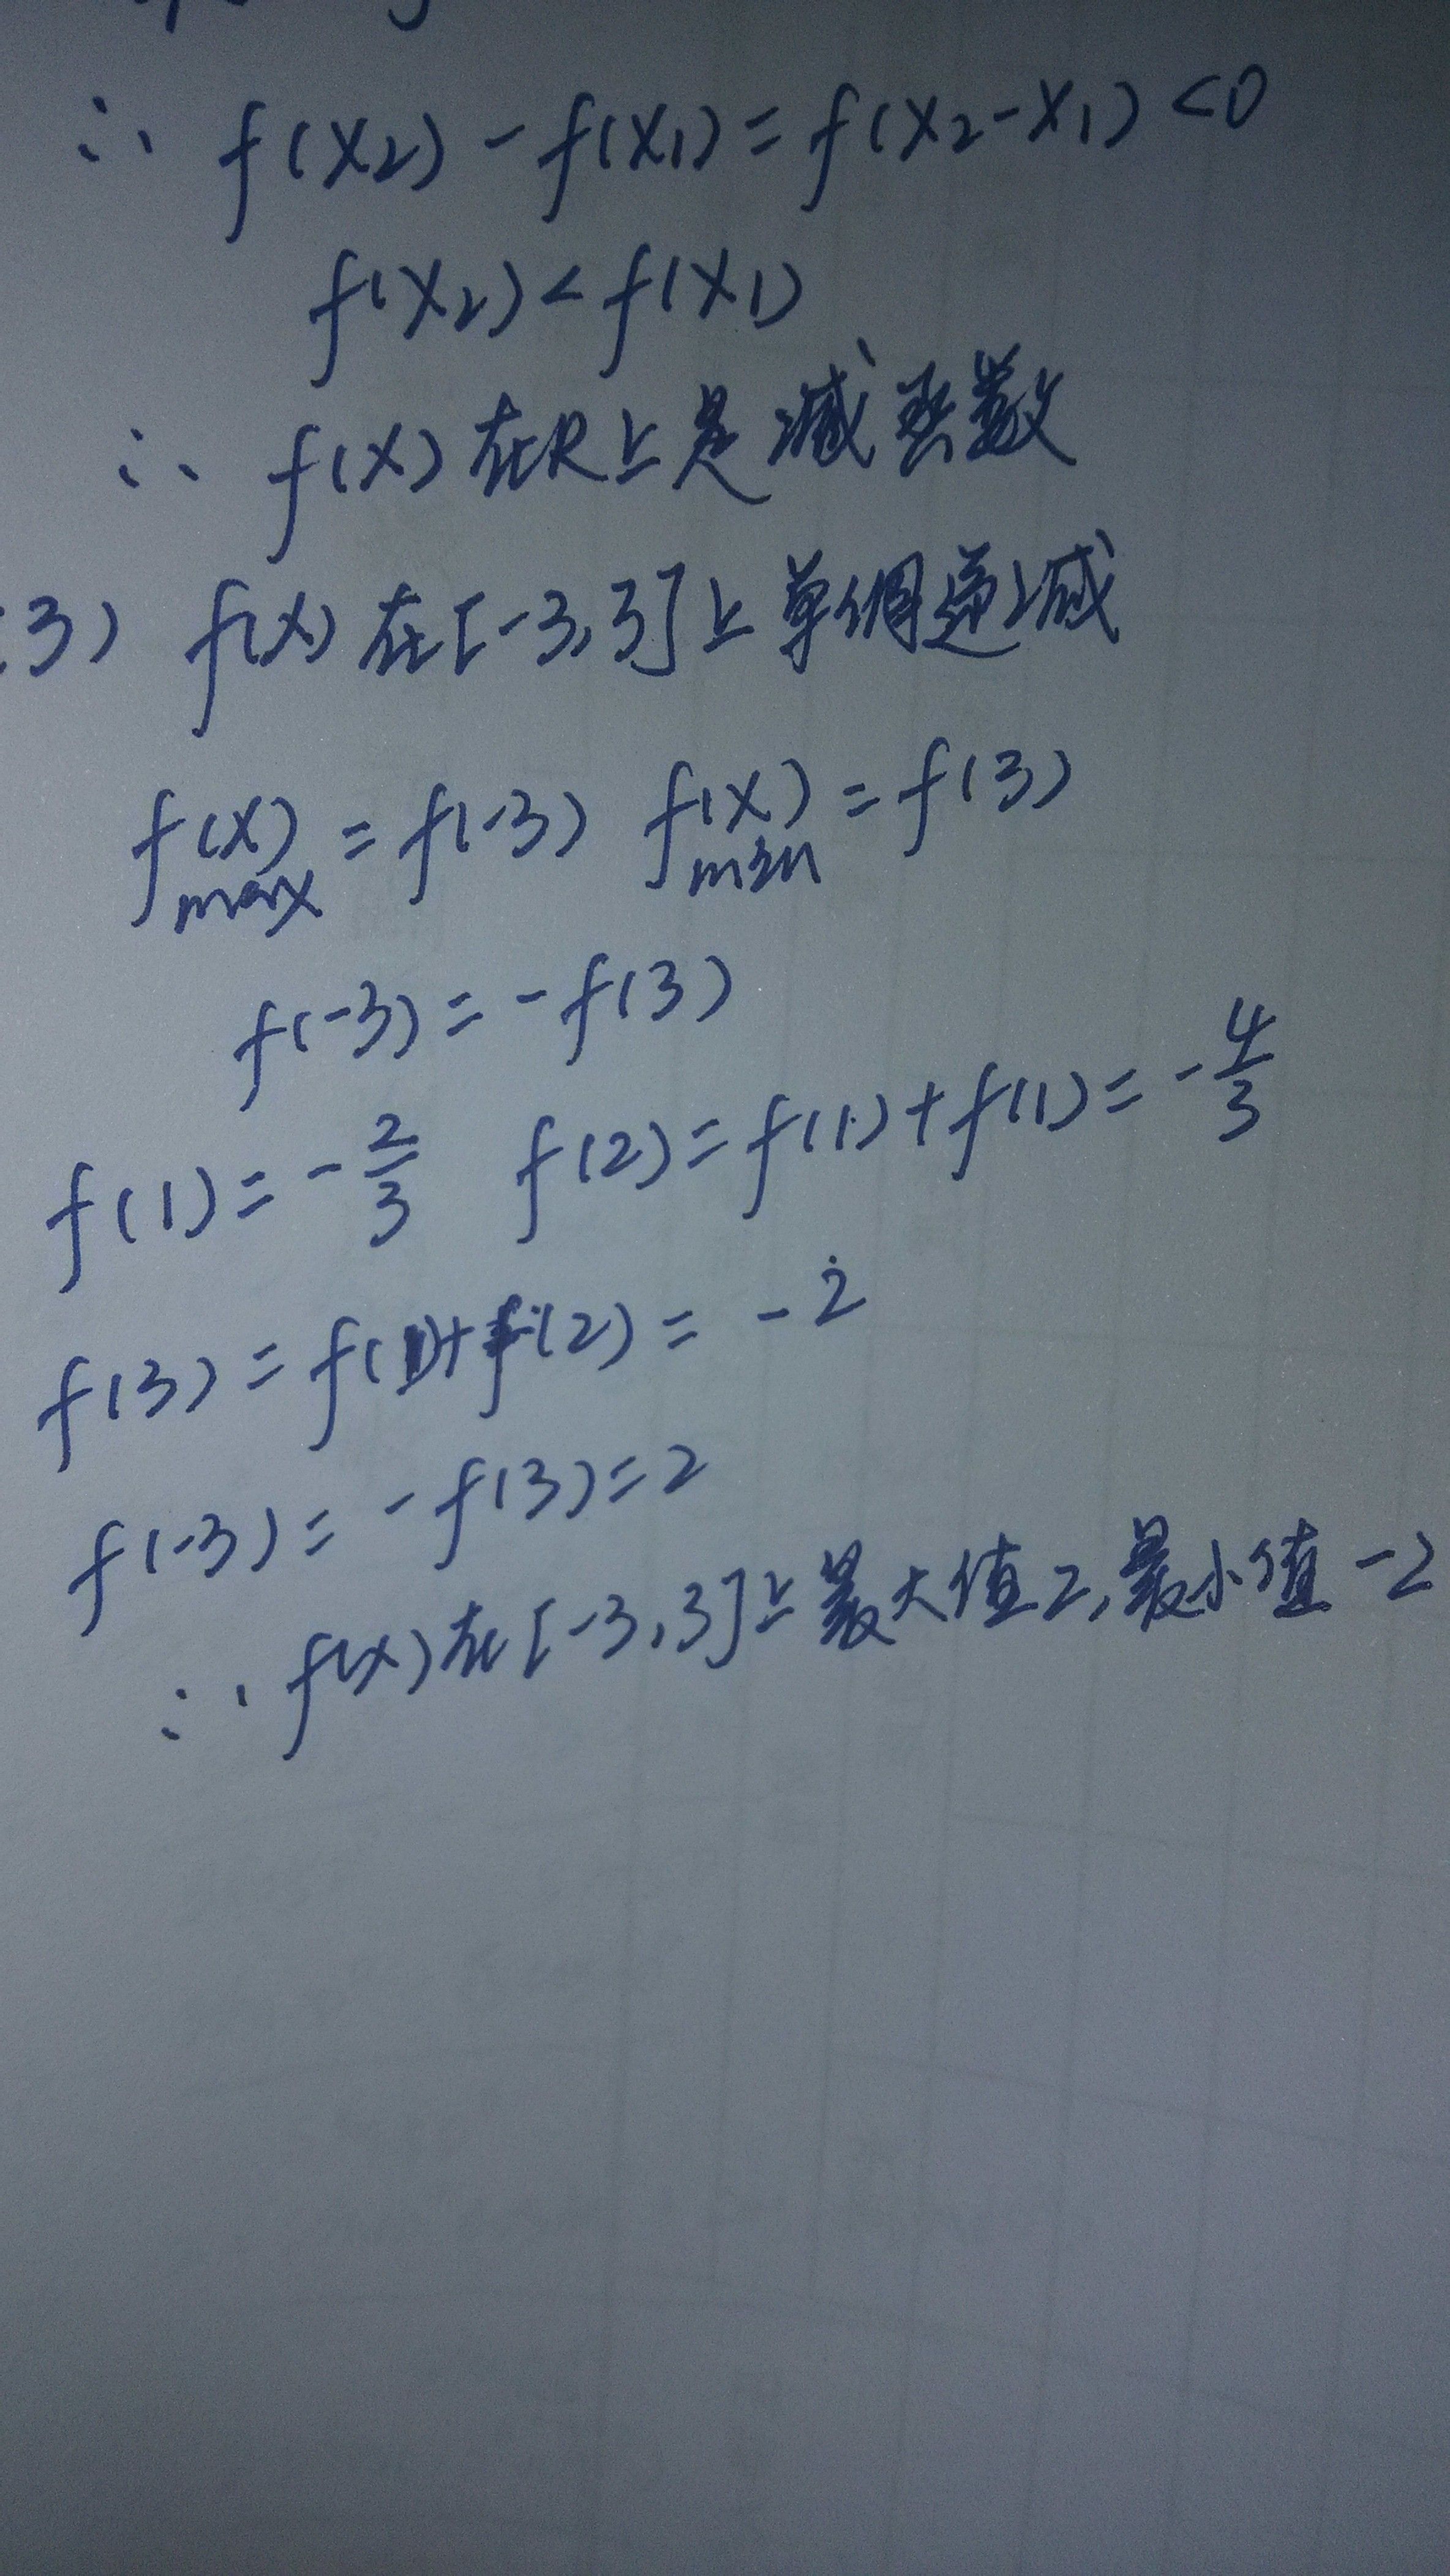 ∴ f(x₂) - f(x₁) = f(x₂-x₁) <0
f(x₂) < f(x₁)
∴ f(x) 在R上是减函数
(3) f(x) 在[-3,3]上单调递减
f(x)max = f(-3) f(x)min = f(3)
f(-3) = -f(3)
f(1) = -2/3 f(2) = f(1) + f(1) = -4/3
f(3) = f(1)+f(2) = -2
f(-3) = -f(3) = 2
∴ f(x)在[-3,3]上最大值2,最小值-2